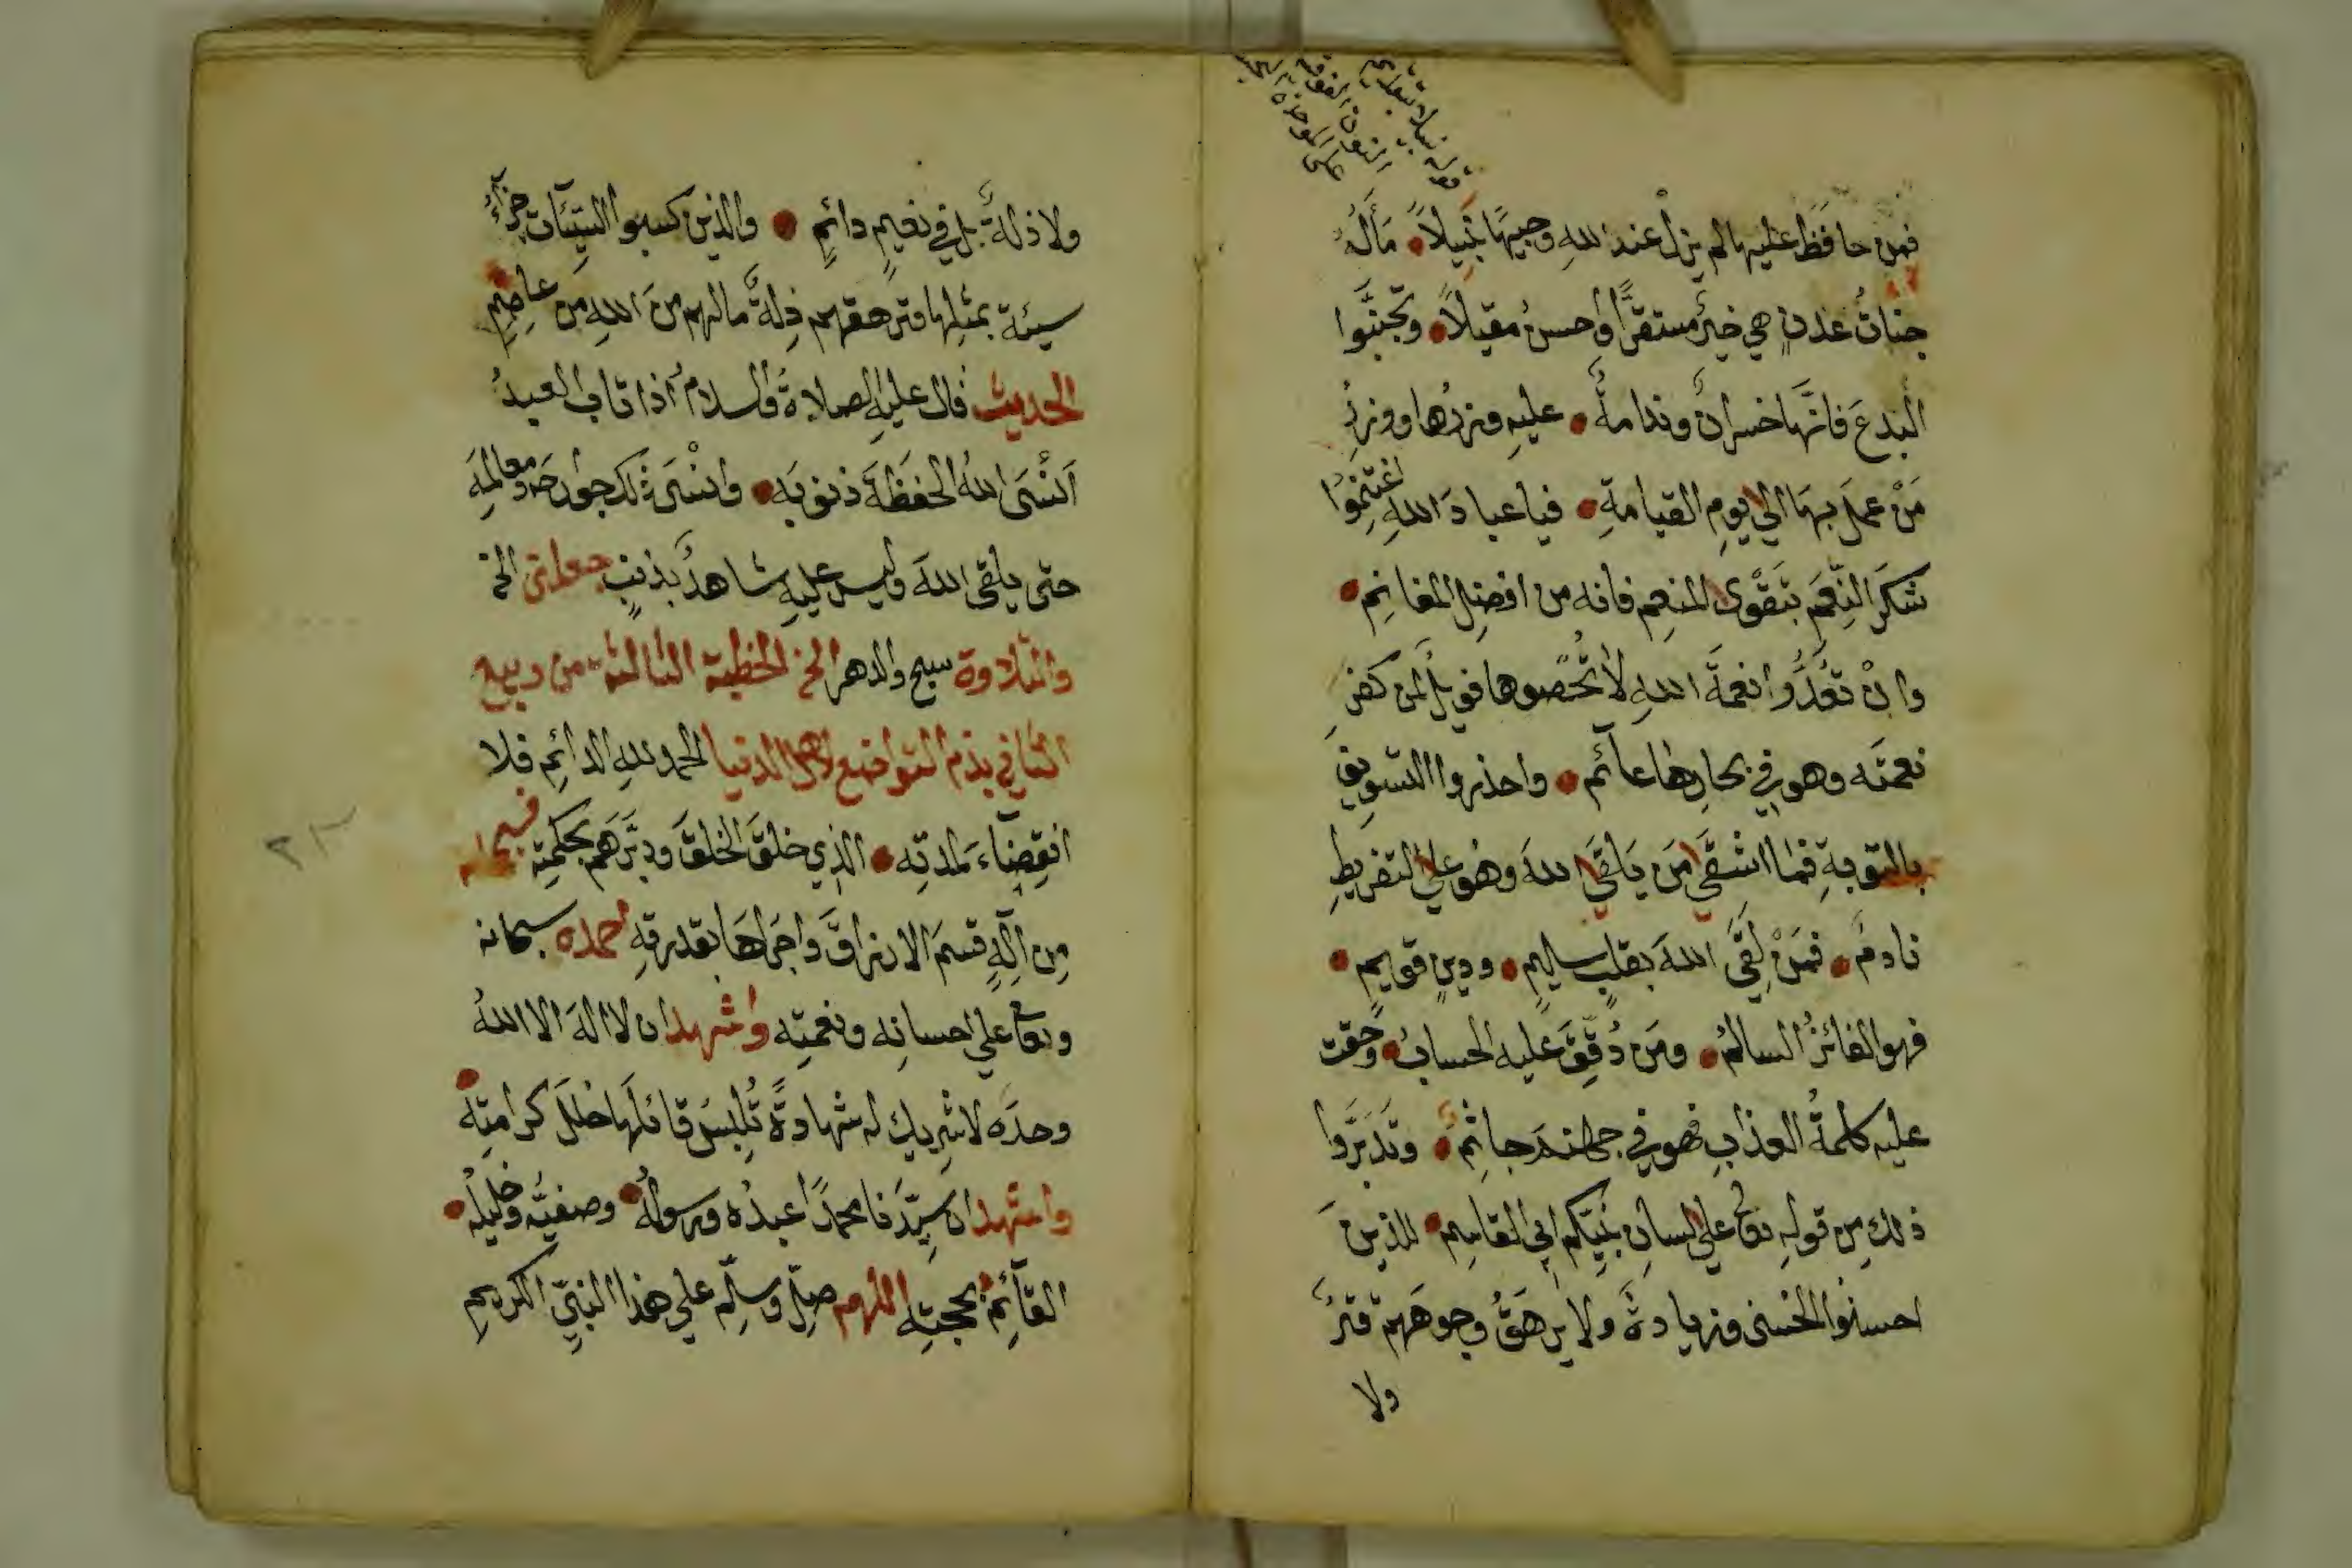 فمن حافظ عليها لم يزل عند الله وجيهًا نبيلاً مآله
جنات عدن هي خير مستقرًا واحسن مقيلاً وتجنبوا
البدع فانها خسران وندامة عليه وزرها ووزر
من عمل بها الي يوم القيامة فيا عباد الله اغتنموا
شكر النعم بتقوى المنعم فانه من افضل المغانم
وان تعدوا نعمة الله لا تحصوها فويل لمن كفر
نعمته وهو في بحارها عآئم واحذروا التسويف
بالتوبة فما اشقى من يلقى الله وهو علي التفريط
نادم فمن لقي الله بقلب سليم ودين قويم
فهو الفائز السالم ومن دقق عليه الحساب وحقت
عليه كلمة العذاب فهو في جهنم جاثم وتدبروا
ذلك من قوله تع علي لسان نبيكم ابي القاسم للذين
احسنوا الحسنى وزيادة ولا يرهق وجوههم قتر
ولا
ولا ذلة بل في نعيم دائم والذين كسبوا السيئات جزآء
سيئة بمثلها وترهقهم ذلة ما لهم من الله من عاصم
الحديث قال عليه الصلاة والسلام اذا تاب العبد
انسى الله الحفظة ذنوبه وانسى ذلك جوارحه ومعالمه
حتى يلقى الله وليس عليه شاهد بذنب جعلني الخ
والتلاوة سبح والدهر الخ الخطبة الثالثة من ربيع
الثاني بذم التواضع لاهل الدنيا الحمد لله الدائم فلا
انقضاء لمدته الذي خلق الخلق ودبرهم بحكمته فسبحانه
من اله قسم الارزاق واجراها بقدرته احمده سبحانه
وتع علي احسانه ونعمته واشهد ان لا اله الا الله
وحده لا شريك له شهادة تلبس قائلها حلل كرامته
واشهد ان سيدنا محمدًا عبده ورسوله وصفيه وخليله
القآئم بحجته اللهم صل وسلم علي هذا النبي الكريم